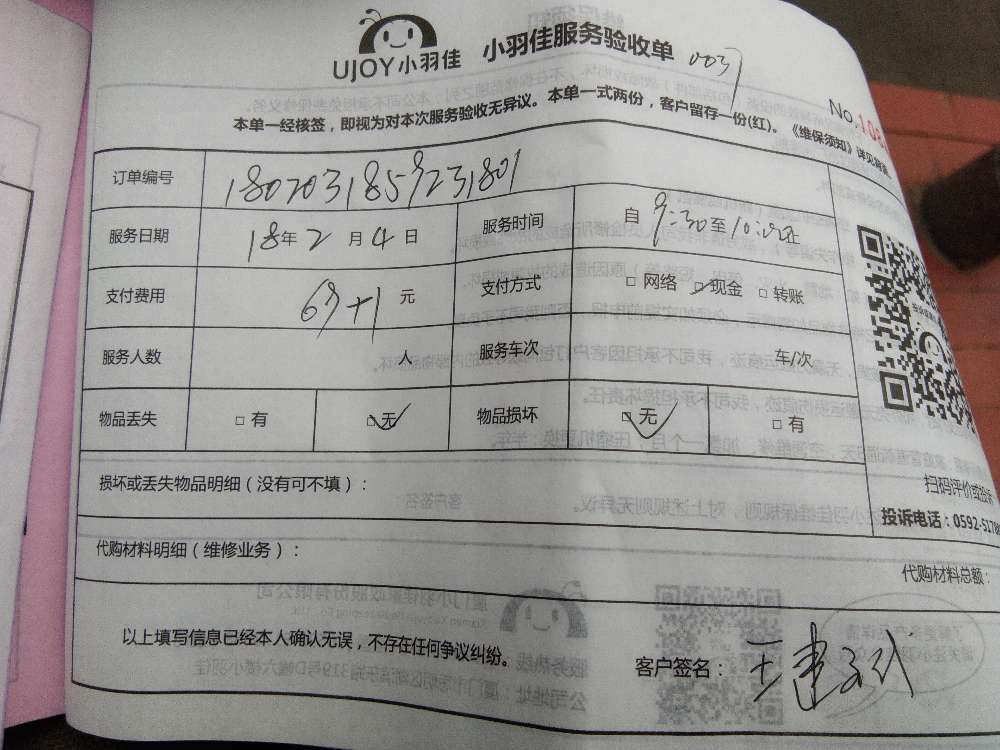 UJOY小羽佳 小羽佳服务验收单 0037
No.108
本单一经核签，即视为对本次服务验收无异议。本单一式两份，客户留存一份(红)。《维保须知》详见背面
订单编号 1802031859231801
服务日期 18年2月4日 服务时间 自9:30至10:
支付费用 69+1元 支付方式 □网络 ☑现金 □转账
服务人数 人 服务车次 车/次
物品丢失 □有 ☑无 物品损坏 ☑无 □有
损坏或丢失物品明细（没有可不填）：
扫码评价或投诉
投诉电话：0592-5178
代购材料明细（维修业务）：
代购材料总额：
以上填写信息已经本人确认无误，不存在任何争议纠纷。
客户签名：王建